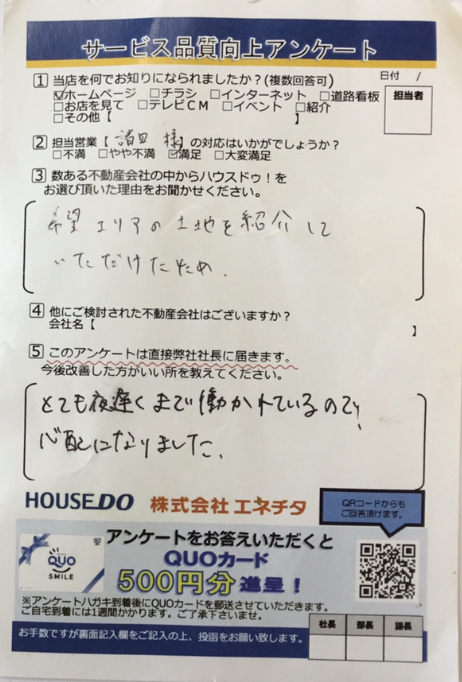 サービス品質向上アンケート
1 当店を何でお知りになられましたか?(複数回答可)
日付 /
☑ホームページ □チラシ □インターネット □道路看板
□お店を見て □テレビCM □イベント □紹介
□その他【 】
担当者
2 担当営業【 諸田 様 】の対応はいかがでしょうか?
□不満 □やや不満 ☑満足 □大変満足
3 数ある不動産会社の中からハウスドゥ!を
お選び頂いた理由をお聞かせください。
希望エリアの土地を紹介して
いただけたため.
4 他にご検討された不動産会社はございますか?
会社名【 】
5 このアンケートは直接弊社社長に届きます。
今後改善した方がいい所を教えてください。
とても夜遅くまで働かれているので、
心配になりました.
HOUSE DO 株式会社 エネチタ
QRコードからも
ご回答頂けます。
アンケートをお答えいただくと
QUOカード
500円分 進呈!
QUO
SMILE
※アンケートハガキ到着後にQUOカードを郵送させていただきます。
ご自宅到着には1週間かかります。ご了承下さいませ。
お手数ですが裏面記入欄をご記入の上、投函をお願い致します。
社長 部長 課長